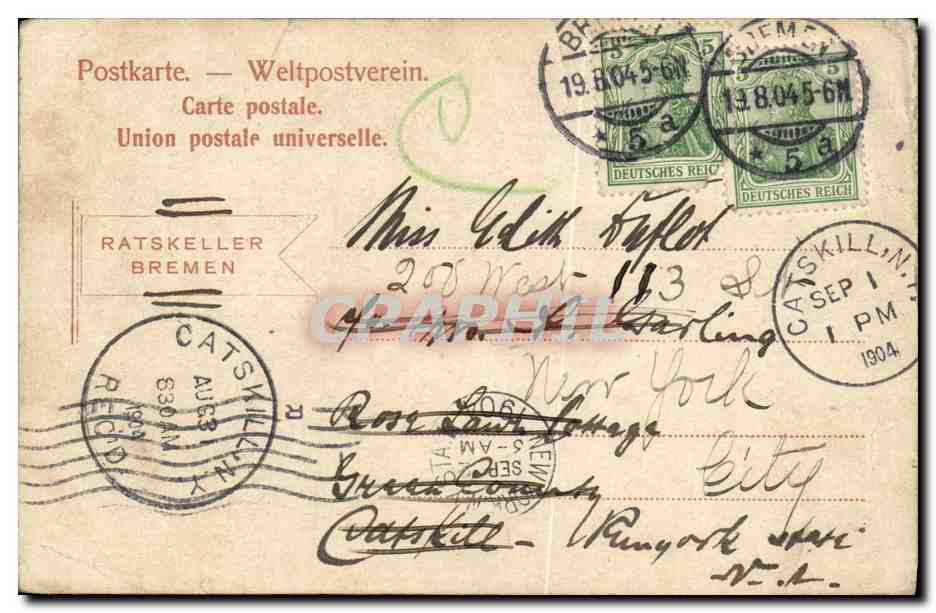 Postkarte. — Weltpostverein.
Carte postale.
Union postale universelle.
BREMEN
19.8.04 5-6N
* 5 a
5 5
DEUTSCHES REICH
BREMEN
19.8.04 5-6N
* 5 a
5 5
DEUTSCHES REICH
RATSKELLER
BREMEN
Miss Edith
200 West 113 St
CARPHIL
New York
Rose Lawn Cottage
City
Green County
Catskill – state
CATSKILL, N.Y.
SEP 1
1 PM
1904
CATSKILL, N.Y.
AUG 31
830 AM
1904
REC'D
NEW YORK
SEP
3-AM
1904